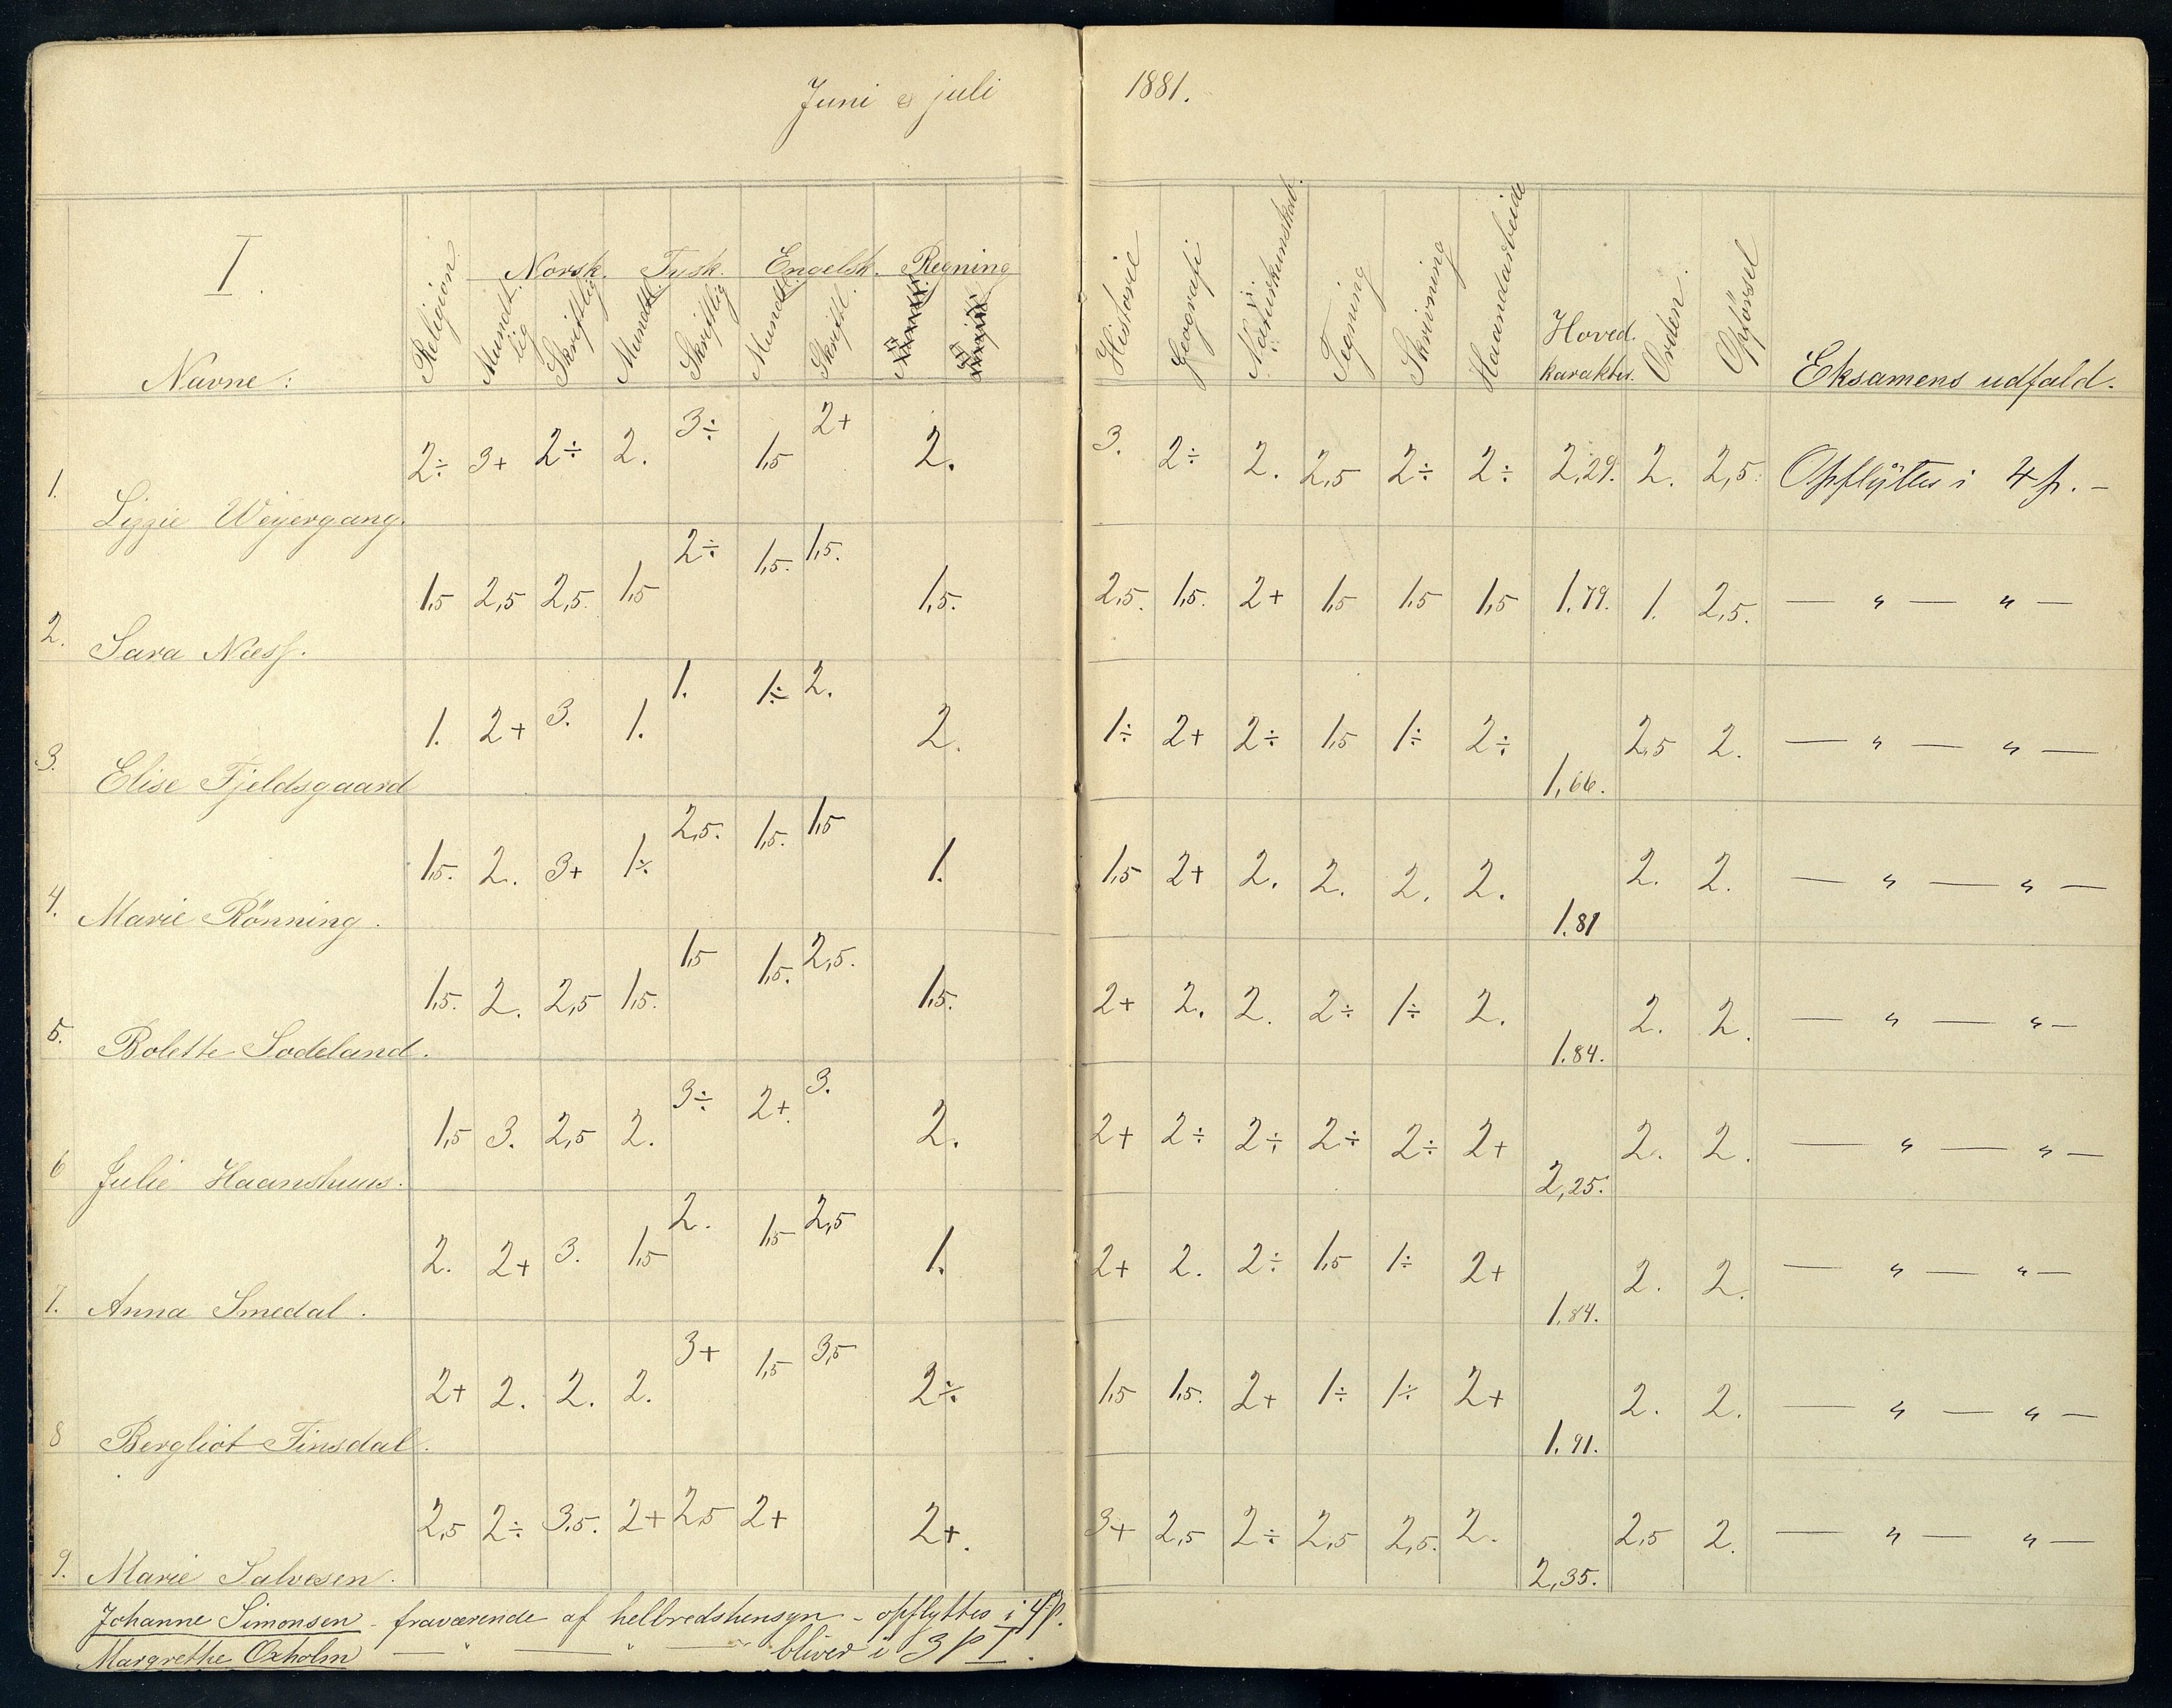 Juni & juli 1881.
I. Norsk. Tysk. Engelsk. Regning
Navne: Religion. Mundtlig Skriftlig Mundtl. Skriftlig Mundtl. Skriftl. Historie Geografi Naturkundskab. Tegning Skrivning Haandarbeide Hoved karakter. Orden. Opførsel Eksamens udfald.
1. Lizzie Weyergang. 2÷ 3+ 2÷ 2. 3÷ 1,5 2+ 2. 3. 2÷ 2. 2,5 2÷ 2÷ 2,29. 2. 2,5. Opflyttes i 4 p. –
2. Sara Næss. 1,5 2,5 2,5. 1,5 2÷ 1,5. 1,5. 1,5. 2,5. 1,5. 2+ 1,5 1,5 1,5 1.79. 1. 2,5. — " — " —
3. Elise Fjeldsgaard 1. 2+ 3. 1. 1. 1÷ 2. 2. 1÷ 2+ 2÷ 1,5 1÷ 2÷ 1,66. 2,5 2. — " — " —
4. Marie Rönning. 1,5. 2. 3+ 1÷ 2,5. 1,5. 1,5 1. 1,5 2+ 2. 2. 2. 2. 1.81 2. 2. — " — " —
5. Bolette Sodeland. 1,5. 2. 2,5 1,5. 1,5 1,5. 2,5. 1,5. 2+ 2. 2. 2÷ 1÷ 2. 1.84. 2. 2. — " — " —
6 Julie Haanshuus. 1,5 3. 2,5 2. 3÷ 2+ 3. 2. 2+ 2÷ 2÷ 2÷ 2÷ 2+ 2,25. 2. 2. — " — " —
7. Anna Smedal. 2. 2+ 3. 1,5 2. 1,5 2,5 1. 2+ 2. 2÷ 1,5 1÷ 2+ 1.84. 2. 2. — " — " —
8 Bergliot Tinsdal. 2+ 2. 2. 2. 3+ 1,5 3,5 2÷ 1,5 1,5. 2+ 1÷ 1÷ 2+ 1.91. 2. 2. — " — " —
9. Marie Salvesen. 2,5 2÷ 3,5. 2+ 2,5 2+ 2+. 3+ 2,5 2÷ 2,5 2,5. 2. 2,35. 2,5 2. — " — " —
Johanne Simonsen – fraværende af helbredshensyn – opflyttes i 4 p.
Margrethe Oxholm — " — " — bliver i 3 p I.